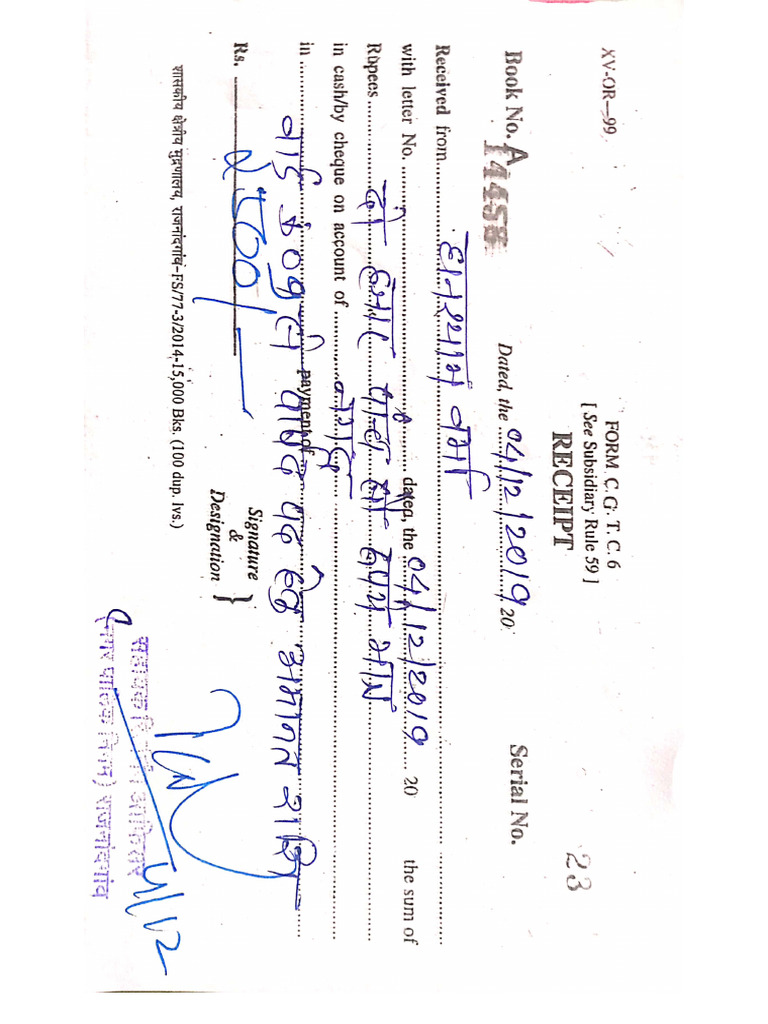 XV-OR—99
FORM C.G. T.C. 6
[ See Subsidiary Rule 59 ]
RECEIPT
23
Book No. A 14458 Dated, the 04/12/2019 20 Serial No.
Received from घनश्याम वर्मा
with letter No. dated, the 04/12/2019 20 the sum of
Rupees दो हजार पांच सौ रुपये मात्र
in cash/by cheque on account of
in payment of
वार्ड पार्षद पद हेतु अमानत राशि
Rs. 2500/-
Signature
&
Designation }
4/12
शासकीय क्षेत्रीय मुद्रणालय, राजनांदगांव–FS/77-3/2014-15,000 Bks. (100 dup. lvs.)
(नगर पालिक निगम) राजनांदगांव